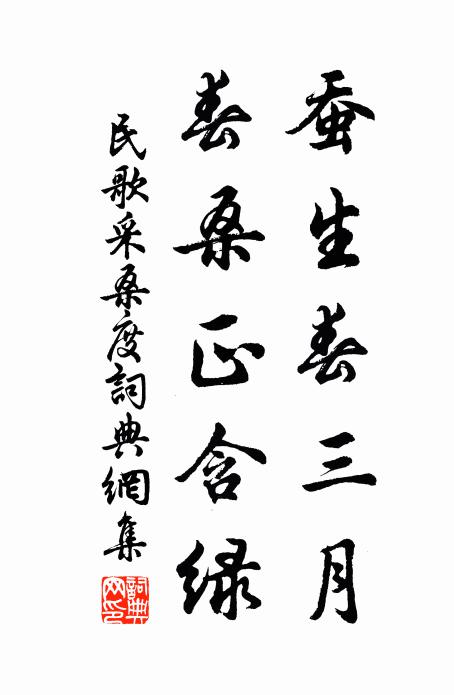 蚕生春三月
春桑正含绿
民歌采桑度詞典網集
詞典
网印